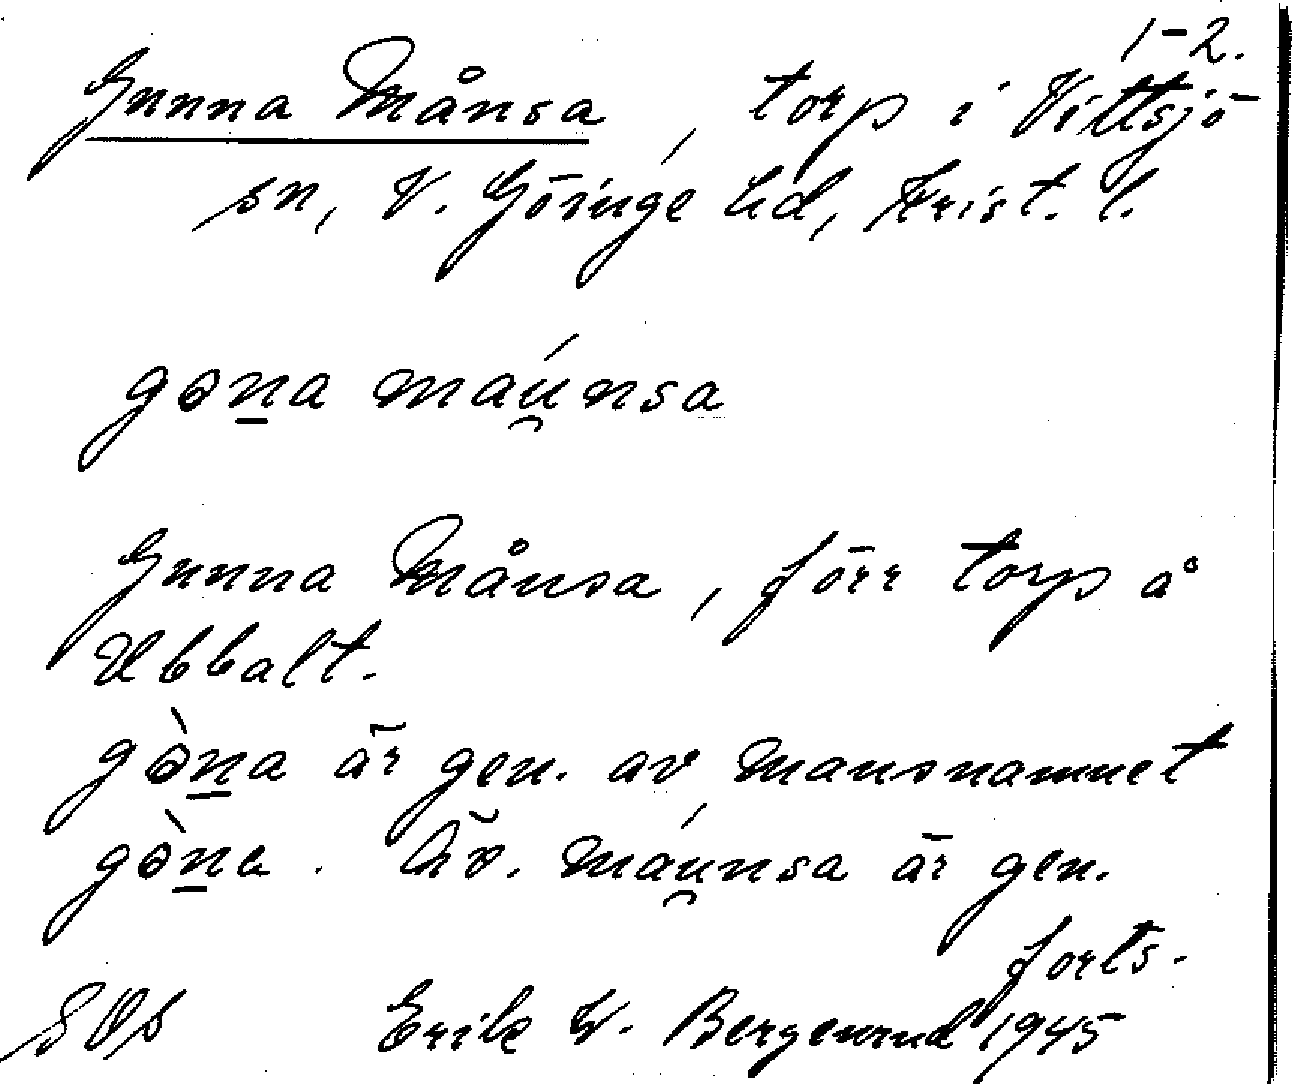 1-2.
Gunna Månsa, torp i Vittsjö
sn, V. Göinge hd, Krist. l.
gɔn̲a maú̯nsa
Gunna Månsa, förr torp å
Ubbalt.
gɔ̀n̲a är gen. av mansnamnet
gɔ̀n̲e. Äv. máu̯nsa är gen.
forts.
SOs Erik W. Bergenrud 1945